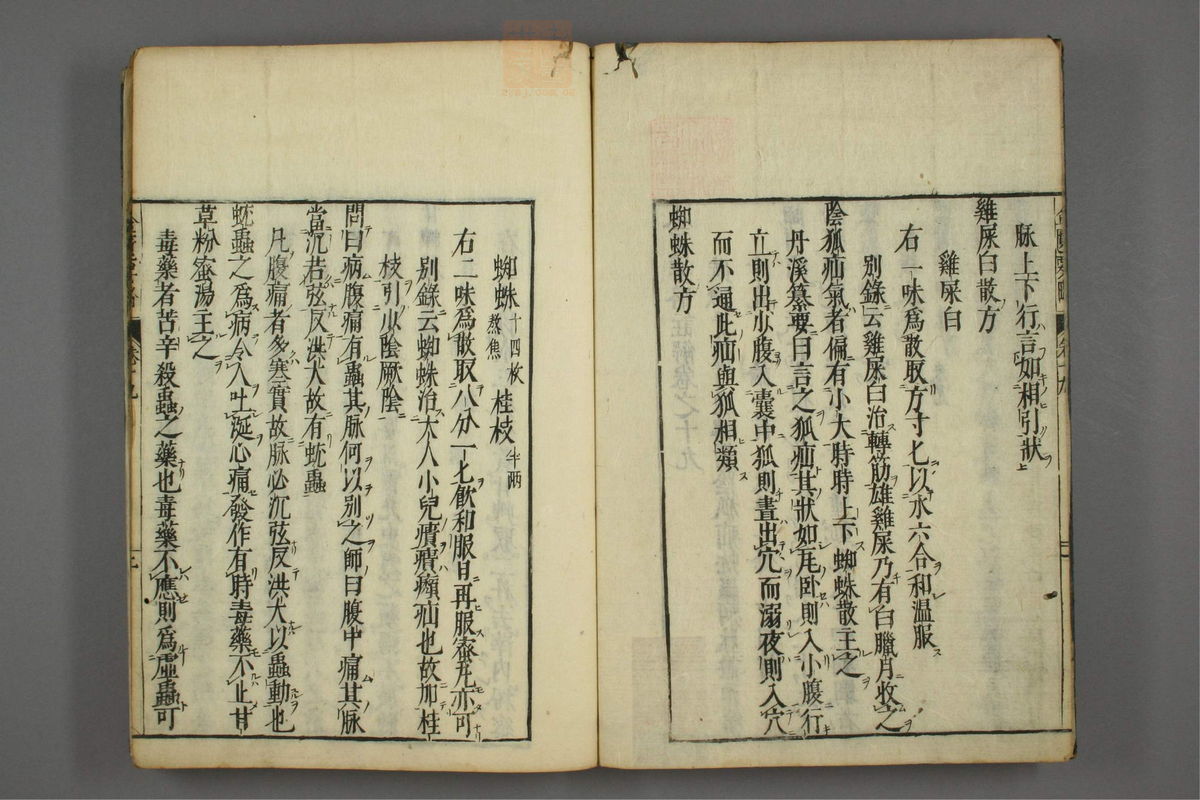 脉上下行言如相引狀
雞屎白散方
雞屎白
右一味爲散取方寸匕以水六合和溫服
別錄云雞屎白治轉筋雄雞屎乃有白臘月收之
陰狐疝氣者偏有小大時時上下蜘蛛散主之
丹溪纂要曰言之狐疝其狀如瓦卧則入小腹行
立則出少腹入囊中狐則晝出穴而溺夜則入穴
而不通此疝與狐相類
蜘蛛散方
蜘蛛十四枚熬焦 桂枝半兩
右二味爲散取八分一匕飮和服日再服蜜丸亦可
別錄云蜘蛛治大人小兒㿉㿉癩疝也故加桂
枝引少陰厥陰
問曰病腹痛有蟲其脉何以別之師曰腹中痛其脉
當沉若弦反洪大故有蚘蟲
凡腹痛者多寒實故脉必沉弦反洪大以蟲動也
蚘蟲之爲病令人吐涎心痛發作有時毒藥不止甘
草粉蜜湯主之
毒藥者苦辛殺蟲之藥也毒藥不應則爲虛蟲可